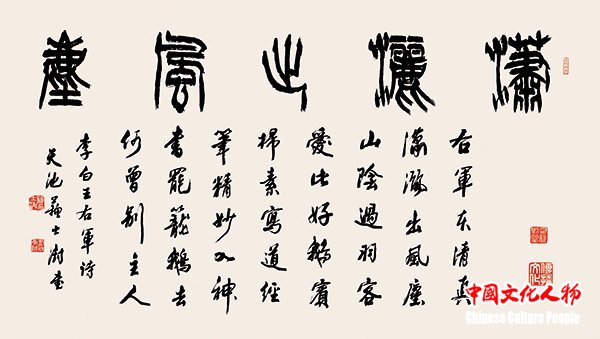 瀟灑出風塵
右軍本清真
瀟灑出風塵
山陰過羽客
愛此好鵝賓
掃素寫道經
筆精妙入神
書罷籠鵝去
何曾別主人
李白王右軍詩
天池蘇士澍書
中國文化人物
Chinese Culture People